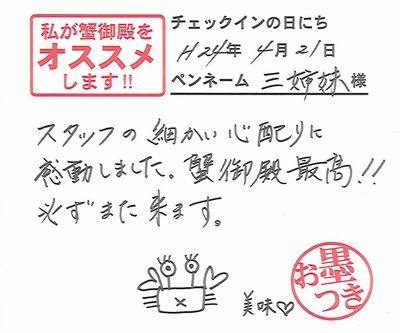 私が蟹御殿を
オススメ
します!!
チェックインの日にち
H24年 4月21日
ペンネーム 三姉妹様
スタッフの細かい心配りに
感動しました。蟹御殿最高!!
必ずまた来ます。
美味♡
お墨つき